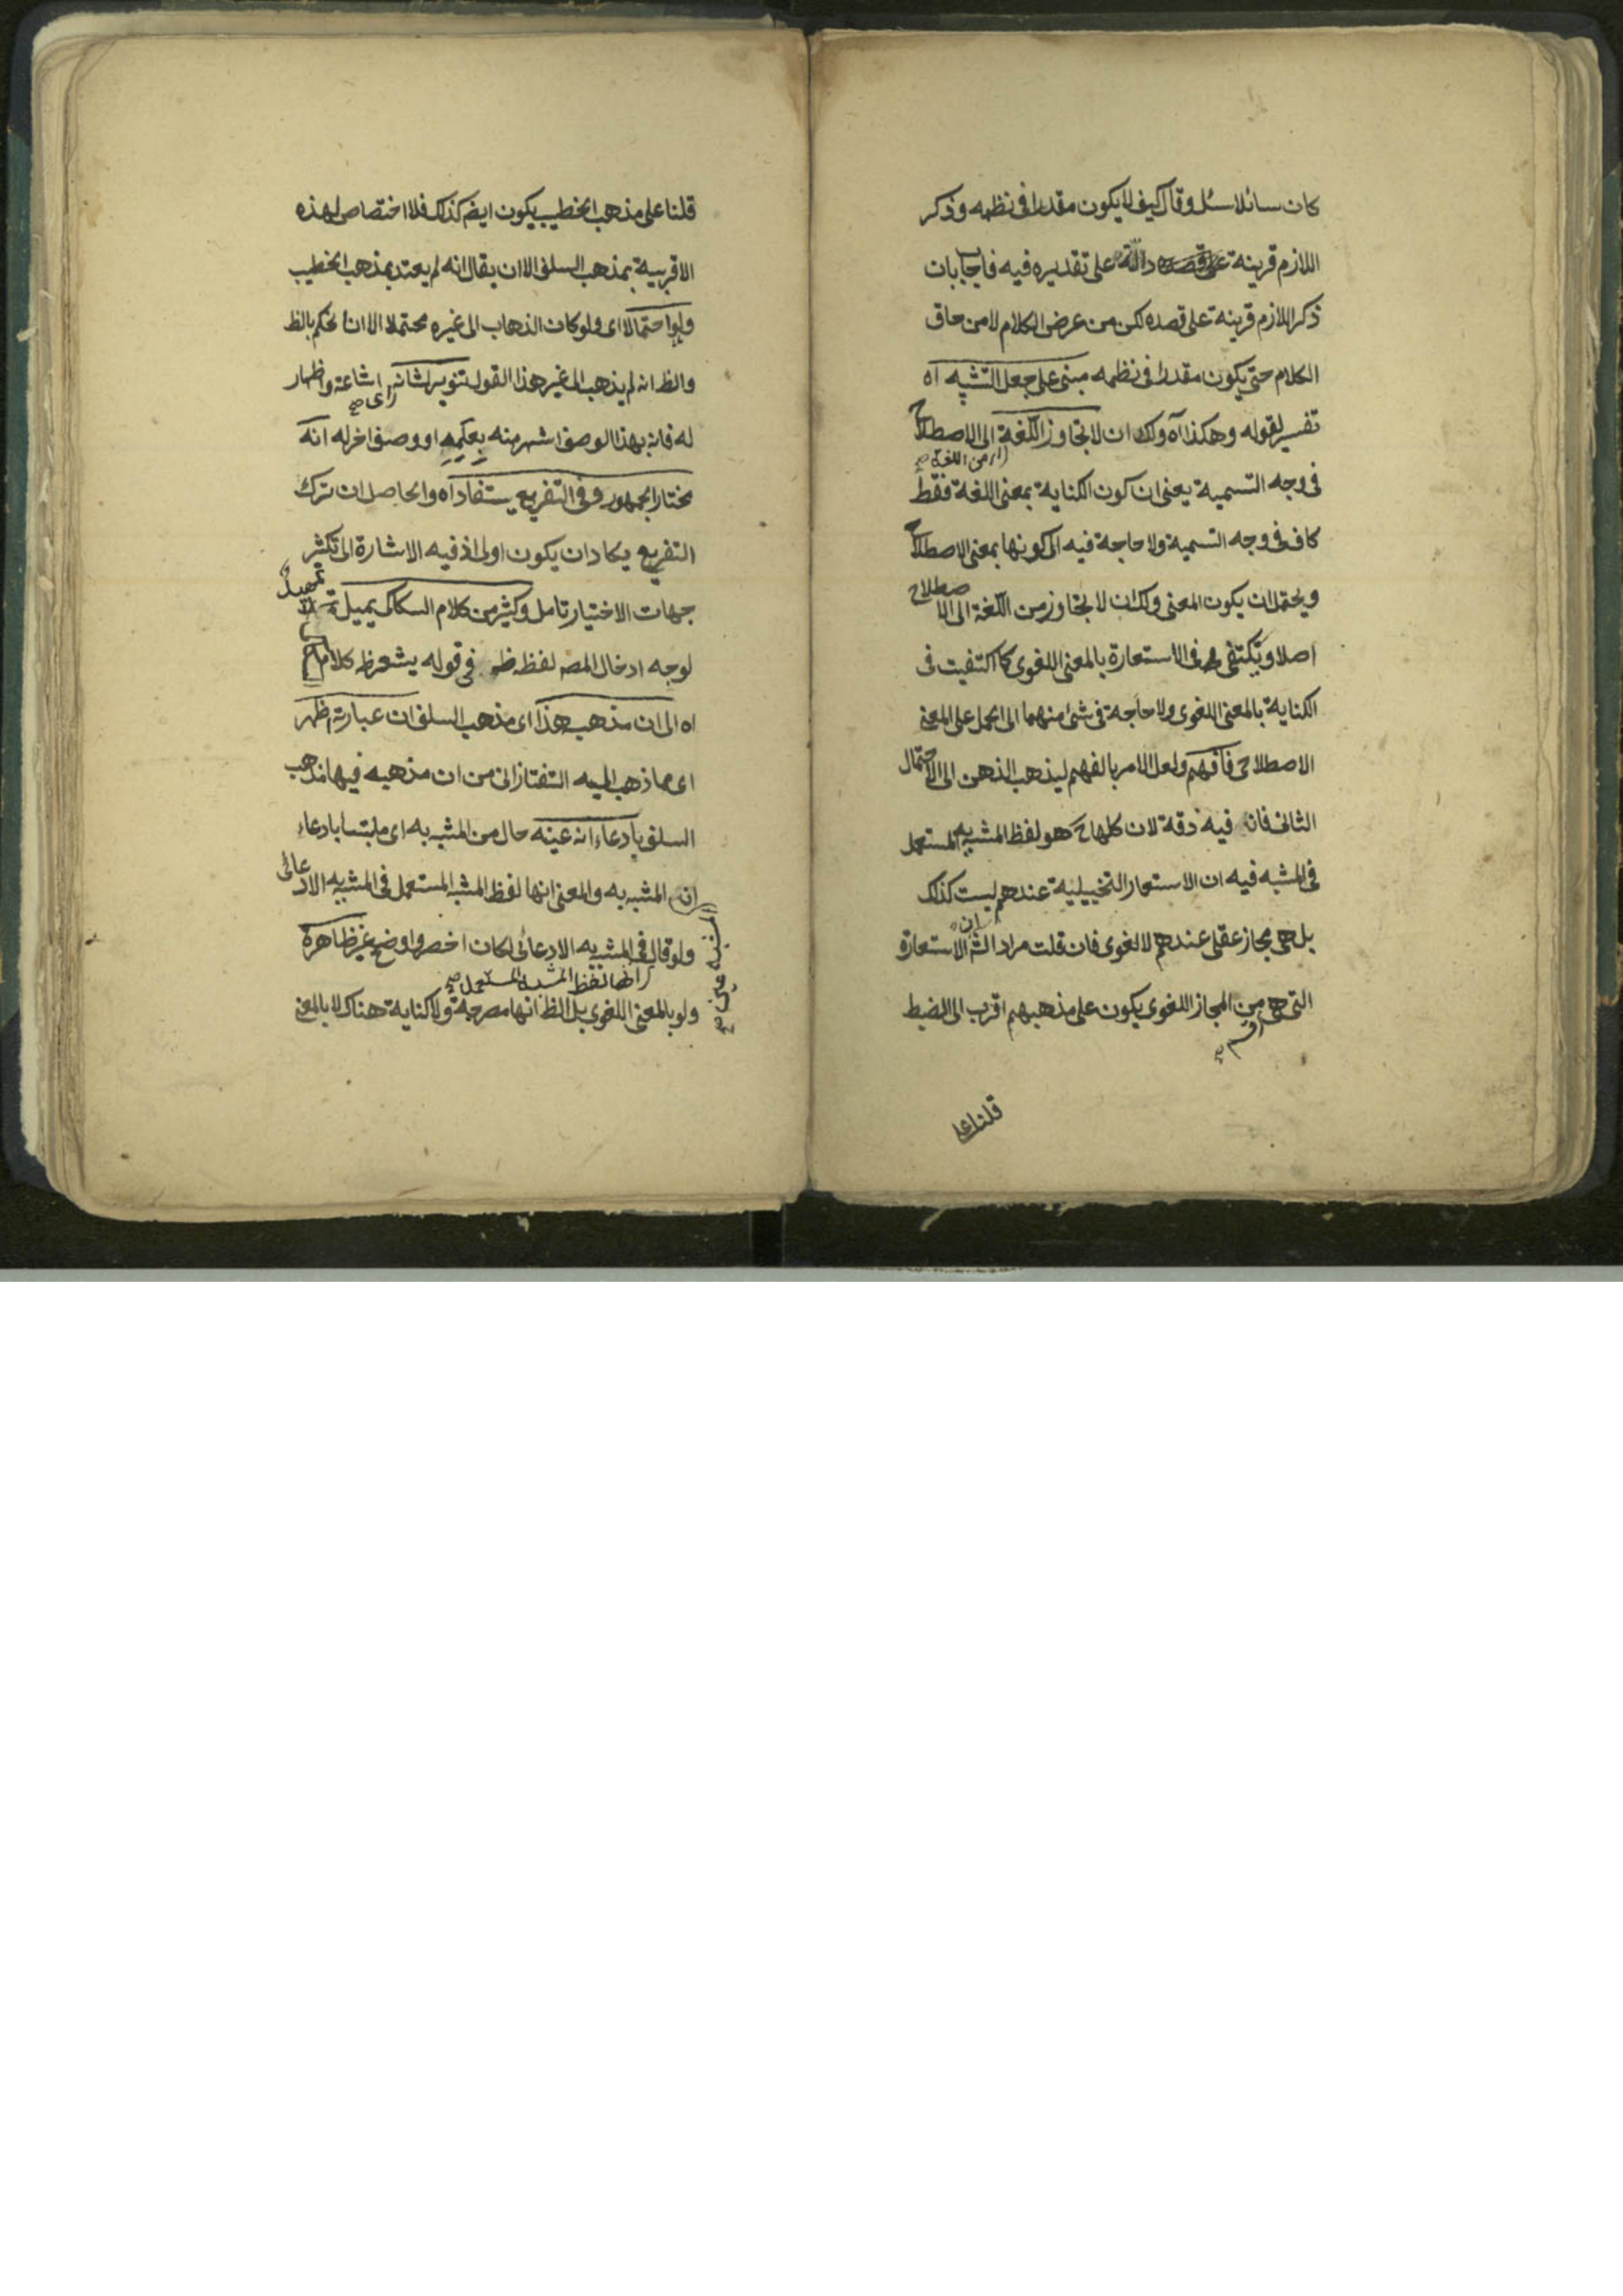 كان سائلا سئل وقال كيف لا يكون مقدرا فى نظمه وذكر
اللازم قرينة على قصده دالة على تقديره فيه فاجاب بان
ذكر اللازم قرينة على قصده لكن من عرض الكلام لا من حاق
الكلام حتى يكون مقدرا فى نظمه مبنى على جعل التشبيه اه
تفسير لقوله وهكذا اه ولك ان لا تتجاوز اللغة الى الاصطلاح
اى من اللغة صح
فى وجه التسمية يعنى ان كون الكناية بمعنى اللغة فقط
كاف فى وجه التسمية ولا حاجة فيه الى كونها بمعنى الاصطلاح
ويحتمل ان يكون المعنى ولك ان لا تتجاوز من اللغة الى الاصطلاح
اصلا ويكتفى فى الاستعارة بالمعنى اللغوى كما اكتفيت فى
الكناية بالمعنى اللغوى ولا حاجة فى شئ منهما الى الحمل على المعنى
الاصطلاحى فافهم ولعل الامر بالفهم ليذهب الذهن الى الاحتمال
الثانى فان فيه دقة لان كلها ح هو لفظ المشبه به المستعمل
فى المشبه فيه ان الاستعار التخييلية عندهم ليست كذلك
بل هى مجاز عقلى عندهم لا لغوى فان قلت مراد الش ان الاستعارة
التى هى من المجاز اللغوى يكون على مذهبهم اقرب الى الضبط
قسم صح
قلنا على
قلنا على مذهب الخطيب يكون ايضم كذلك فلا اختصاص لهذه
الاقربية بمذهب السلف الا ان يقال انه لم يعتد بمذهب الخطيب
ولو احتمالا اى ولو كان الذهاب الى غيره محتملا الا انا نحكم بالظ
والظ انه لم يذهب الى غير هذا القول تنوير لشانه اى اشاعة واظهار
راى صح
له فانه بهذا الوصف اشهر منه بعلمه او وصف اخر له انه
مختار الجمهور وفى التفريع يستفاد اه والحاصل ان ترك
التفريع يكاد ان يكون اولى اذ فيه الاشارة الى تكثير
جهات الاختيار تامل وكثير من كلام السكاكى يميل اه تمهيد
لوجه ادخال المص لفظ ظ فى قوله يشعر ظ كلام
اه الى ان مذهبه هذا اى مذهب السلف ان عبارته اظهر
اى مما ذهب اليه التفتازانى من ان مذهبه فيها مذهب
السلف بادعاء انه عينه حال من المشبه به اى ملتبسا بادعاء
ان المشبه به والمعنى انها لفظ المشبه المستعمل فى المشبه به الادعائى
المشبه عين صح
ولو قال فى المشبه به الادعائى لكان اخصر واوضح غير ظاهرة
انها لفظ المشبه المستعمل صح
ولو بالمعنى اللغوى بل الظ انها مصرحة ولا كناية هناك لا بالمعنى